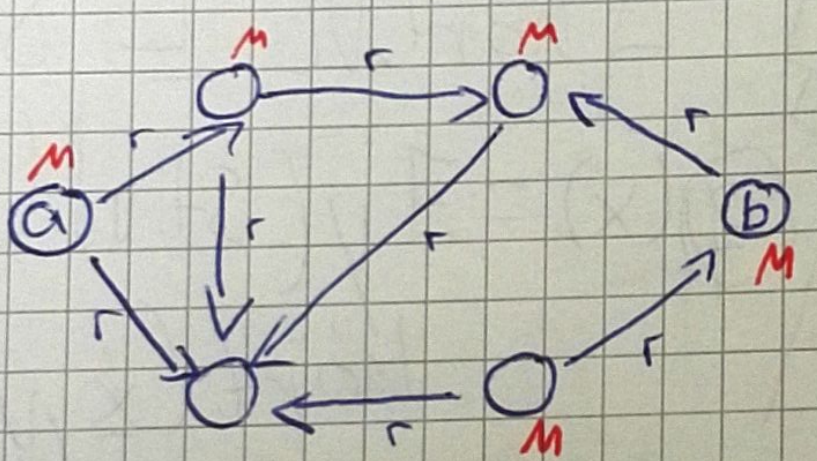 M M
r
r r
M
a b
r
r M
r r
r M